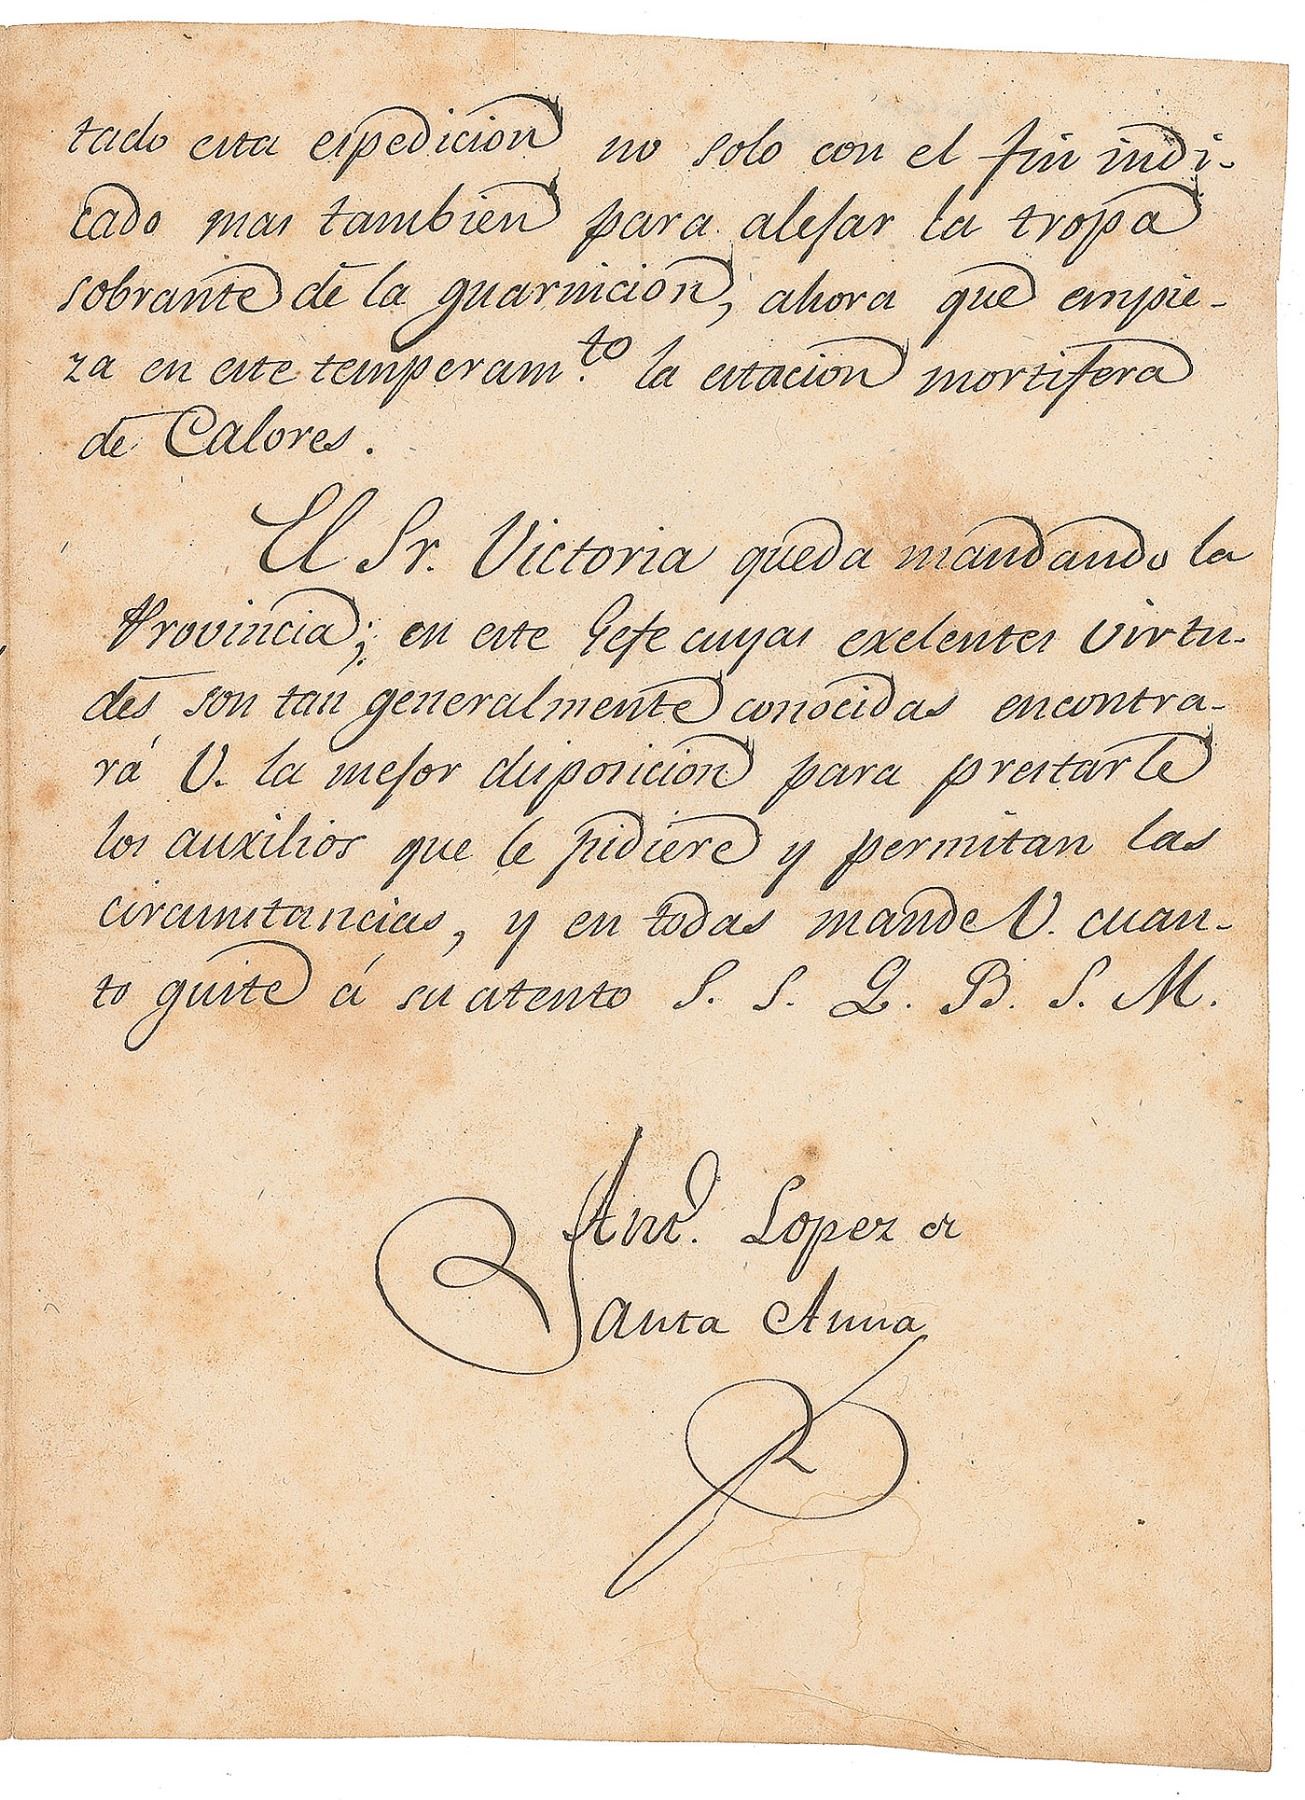 tado esta espedicion no solo con el fin indi-
cado mas tambien para alejar la tropa
sobrante de la guarnicion, ahora que empie-
za en este temperam.to la estacion mortifera
de Calores.
El Sr. Victoria queda mandando la
Provincia; en este Gefe cuyas exelentes virtu-
des son tan generalmente conocidas encontra-
rá V. la mejor disposicion para prestarle
los auxilios que le pidiere y permitan las
circunstancias, y en todas mande V. cuan-
to guste á su atento S. S. Q. B. S. M.
Anto. Lopez de
Santa Anna